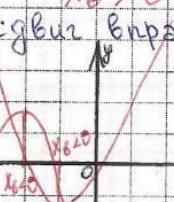 сдвиг впра
y
xв<0
O
xв<0